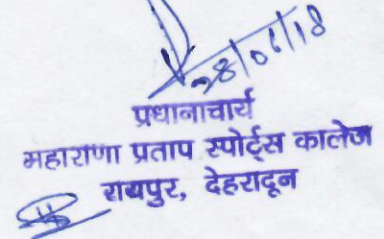 28/06/18
प्रधानाचार्य
महाराणा प्रताप स्पोर्ट्स कालेज
रायपुर, देहरादून